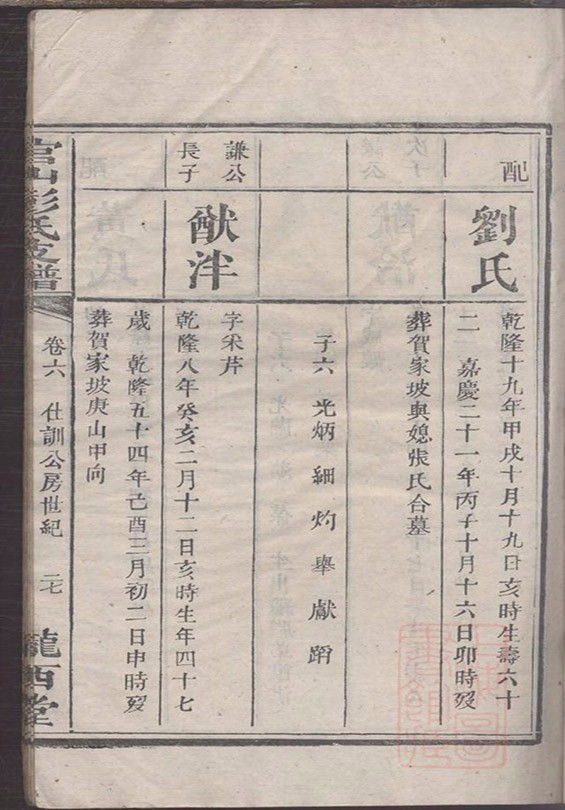 配
劉氏
乾隆十九年甲戌十月十九日亥時生壽六十
二 嘉慶二十一年丙子十月十六日卯時歿
葬賀家坡與媳張氏合墓
子六 光炳 細 灼 舉 獻 蹈
謙公
長子
猷泮
字采芹
乾隆八年癸亥二月十二日亥時生年四十七
歲 乾隆五十四年己酉三月初二日申時歿
葬賀家坡庚山甲向
官山彭氏支譜
卷六 仕訓公房世紀 二七
隴西堂